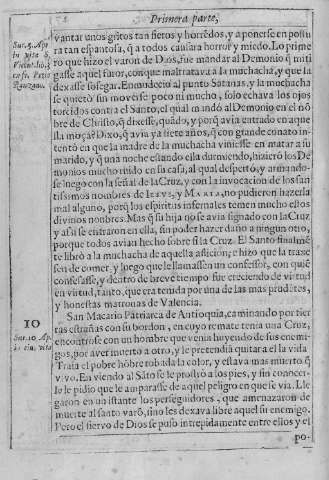 Primera parte,
vantar unos gritos tan fieros y horrẽdos, y a ponerse en postu
ra tan espantosa, q̃ a todos causara horror y miedo. Lo prime
ro que hizo el varon de Dios, fue mandar al Demonio q̃ miti
gasse aquel furor, con que maltratava a la muchacha, y que la
dexasse sosegar. Enmudeciò al punto Satanas, y la mochacha
se quietò sin moverse poco ni mucho, solo echava los ojos
torcidos contra el Santo, el qual mandò al Demonio en el nõ
bre de Christo, q̃ dixesse, quãdo, y porq̃ avia entrado en aque
lla moça? Dixo, q̃ avia ya siete años, q̃ con grande conato in
tentò en que la madre de la muchacha viniesse en matar a su
marido, y q̃ una noche estando ella durmiendo, hizierõ los De
monios mucho ruido en su casa, al qual despertò, y armando-
se luego con la señal de la Cruz, y con la invocacion de los san
tissimos nombres de IESVS, y MARIA, no pudieron hazerla
mal alguno, porq̃ los espiritus infernales temen mucho estos
divinos nombres. Mas q̃ su hija no se avia signado con la Cruz
y assi se entraron en ella, sin poder hazer daño a ningun otro,
porque todos avian hecho sobre si la Cruz. El Santo finalmẽ
te librò a la muchacha de aquella afliciõ, e hizo que la traxe
sen de comer, y luego que le llamassen un confessor, con quiẽ
confesasse, y dentro de breve tiempo fue creciendo de virtud
en virtud, tanto, que era tenida por una de las mas prudẽtes,
y honestas matronas de Valencia.
San Macario Patriarca de Antioquia, caminando por tier
ras estrañas con su bordon, en cuyo remate tenia una Cruz,
encontrose con un hombre que venia huyendo de sus enemi-
gos, por aver muerto a otro, y le pretendiã quitar a el la vida
Traia el pobre hõbre robada la color, y estava mas muerto q̃
vivo. En viendo al Sãto se prostrò a los pies, y sin conocer-
le le pidio que le amparasse de aquel peligro en que se via. Lle
garon en un instante los perseguidores, que amenazaron de
muerte al santo varõ, sino les dexava libre aquel su enemigo.
Pero el siervo de Dios se puso intrepidamente entre ellos y el
po-
10